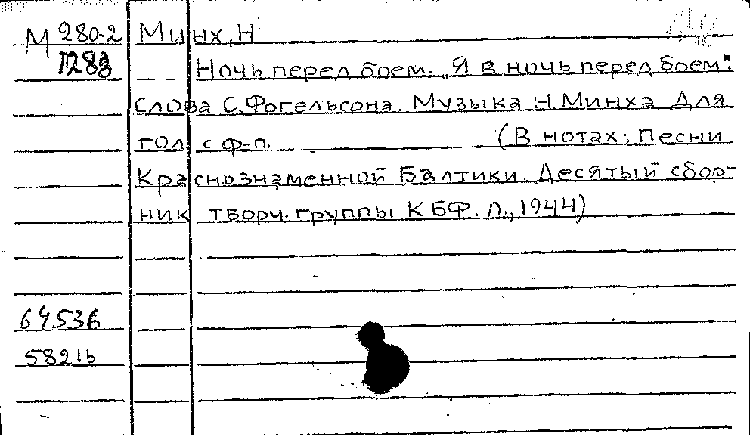 М 280-2 Минх, Н
Ночь перед боем. „Я в ночь перед боем".
Слова С. Фогельсона. Музыка Н. Минха Для
гол. с ф-п. (В нотах: Песни
Краснознаменной Балтики. Десятый сбор-
ник творч. группы КБФ. Л., 1944)
64536